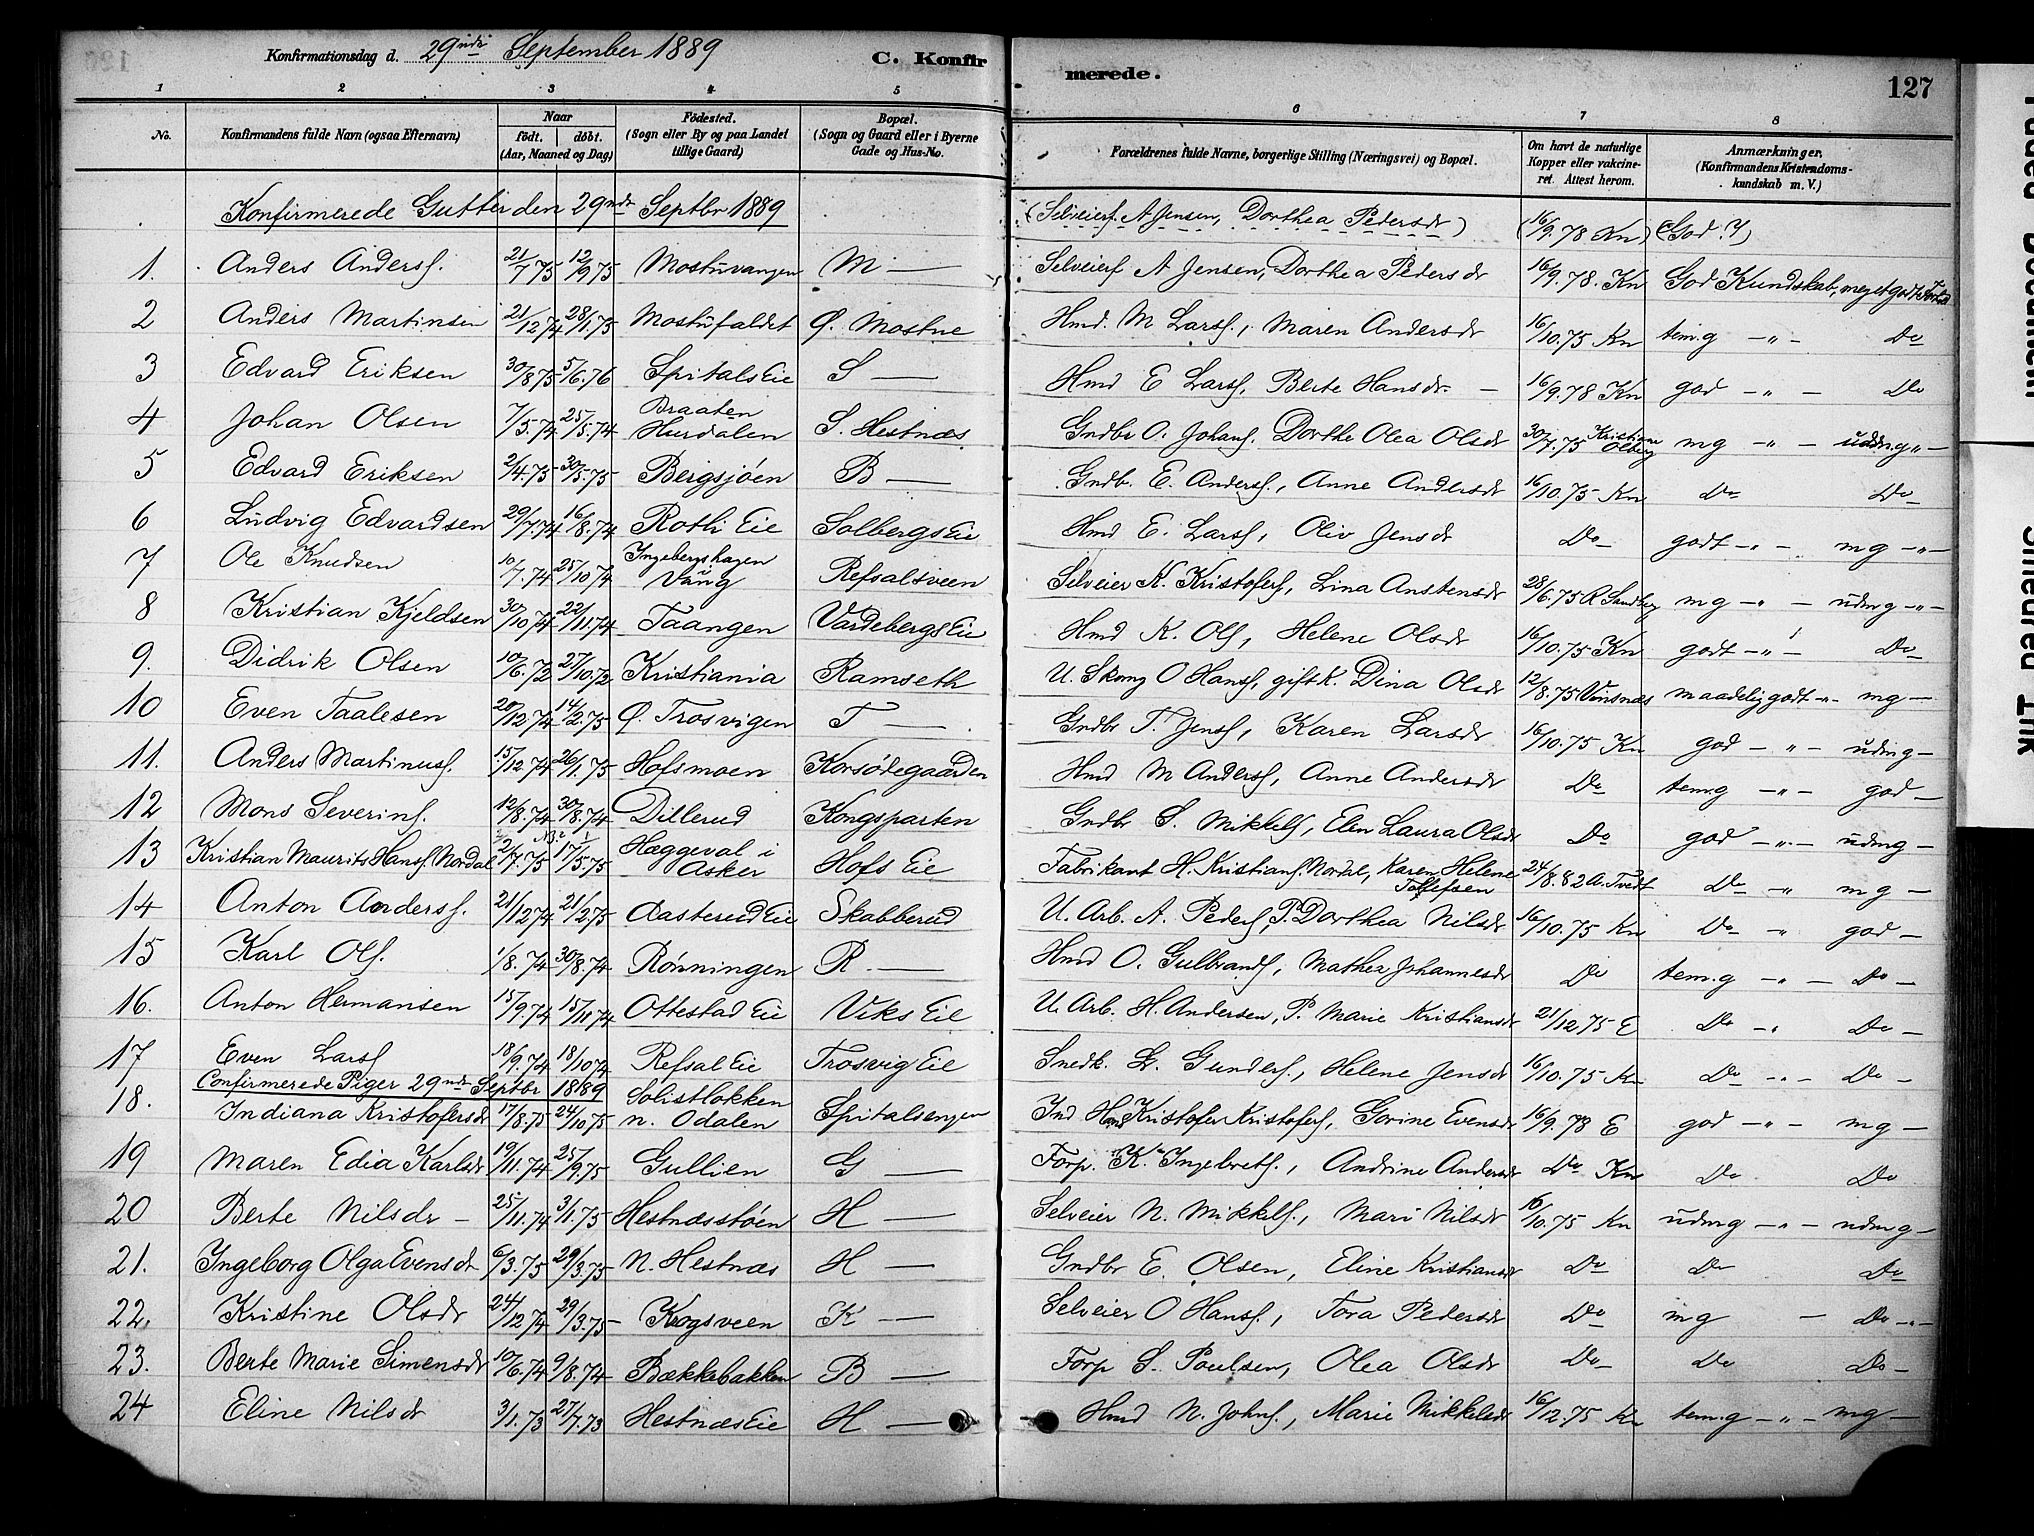 Konfirmationsdag d. 29nde September 1889 C. Konfirmerede. 127
1 2 3 4 5 6 7 8
No. Konfirmandens fulde Navn (ogsaa Efternavn) Naar født. døbt. (Aar, Maaned og Dag) Fødested. (Sogn eller By og paa Landet tillige Gaard) Bopæl. (Sogn og Gaard eller i Byerne Gade og Hus-No. Forældrenes fulde Navne, borgerlige Stilling (Næringsvei) og Bopæl. Om havt de naturlige Kopper eller vakcineret. Attest herom. Anmærkninger. (Konfirmandens Kristendomskundskab m. V.)
Konfirmerede Gutter den 29nde Septbr 1889 (Selveierf. A Jensen, Dorthea Pedersdr) (16/9.78 Kn) (God)
1. Anders Andersf. 21/7 75 12/9 75 Mostuvangen M — Selveierf A Jensen, Dorthea Pedersdr 16/9.78. Kn God Kundskab, meget godt
2 Anders Martinsen 21/12 74 28/1.75 Mostufaldet Ø. Mostue Hmd. M Larsf., Maren Andersdr 16/10.75 Kn tem.g —"— Do
3 Edvard Eriksen 30/8 75 5/6.76 Spitals Eie S — Hmd E Larsf, Berte Hansdr — 16/9.78 Kn god —"— Do
4 Johan Olsen 7/5.74 25/5.74 Braaten Hurdalen S. Hestnæs Gndbr O. Johanf. Dorthe Olea Olsdr 30/7.75 Kristian Olberg mg —"— udm.g"—
5 Edvard Eriksen 2/4.75 30/5.75 Bergsjøen B — Gndbr. E. Andersf., Anne Andersdr 16/10.75 Kn Do Do
6 Ludvig Edvardsen 29/7.74 16/8.74 Rothi Eie Solbergs Eie Hmd E. Larsf, Oliv Jensdr Do godt —"— mg —"—
7 Ole Knudsen 10/7.74 25/10 74 Ingebergshagen Vang Refsalsveen Selveier K. Kristoferf, Lina Anstensdr 28/6.75 R Sandberg mg —"— udmg —"—
8 Kristian Kjeldsen 30/10 74 22/11.74 Taangen Vardebergs Eie Hmd K. Olf, Helene Olsdr 16/10.75 Kn godt —"— Do
9. Didrik Olsen 10/6.72 27/10.72 Kristiania Ramseth U. Skomg O Hansf, gift K. Dina Olsdr 12/8.75 Vinsnæs maadelig godt —"— mg —
10 Even Taalesen 20/12 74 14/2.75 Ø. Trosvigen T — Gndbr T. Jensf, Karen Larsdr 16/10.75 Kn god —"— udmg —
11. Anders Martinusf. 15/12.74 26/1.75 Hofsmoen Korsødegaarden Hmd M Andersf, Anne Andersdr Do tem.g —"— god —
12 Mons Severinf. 12/8.74 30/8.74 Dillerud Kongsparten Gndbr S. Mikkelf, Elen Laura Olsdr Do god —"— udmg —
13 Kristian Maurits Hansf. Nordal 2/7.75 17/5.75 Hæggeval i Asker Hofs Eie Fabrikant H. Kristianf. Nordal, Karen Helene Tollefsen 24/8.82 A. Tvedt Do " mg —
14 Anton Andersf. 21/12 74 21/2.75 Aasterud Eie Skabberud U. Arb. A. Pedersf, P. Dorthea Nilsdr 16/10.75 Kn Do " god —
15 Karl Olf. 1/8.74 30/8.74 Rønningen R. — Hmd O. Gulbrandf, Mathea Johannesdr Do tem.g —"— Do —
16. Anton Hermansen 15/9.74 15/11 74 Ottestad Eie Viks Eie U. Arb. H. Andersen, P. Marie Kristiansdr 21/12.75 E Do —" Do —
17 Even Larsf 18/9.74 18/10 74 Refsal Eie Trosvig Eie Snedk. L. Gundersf., Helene Jensdr 16/10.75 Kn Do —"— Do —
Confirmerede Piger 29nde Septbr 1889
18. Indiana Kristofersdr 17/8.75 24/10 75 Solistløkken n. Odalen Spitalsengen Ind Hmd Kristofer Kristoferf, Gorine Evensdr 16/9.78 E god —"— mg —
19 Maren Edia Karlsdr 19/11.74 25/9.75 Gullien G — Forp. K. Ingebretf., Andrine Andersdr Do Kn Do Do
20 Berte Nilsdr — 25/11.74 3/1.75 Hestnæsstøen H — Selveier N. Mikkelf., Mari Nilsdr 16/10.75 Kn udmg —"— udmg —
21. Ingeborg Olga Evensdr 6/3.75 29/3.75 N. Hestnæs H — Gndbr E. Olsen, Eline Kristiansdr Do Do Do
22. Kristine Olsdr 24/12 74 29/3.75 Krogsveen K — Selveier O Hansf., Tora Pedersdr Do mg — Do —"—
23. Berte Marie Simensdr 10/6.74 9/8.74 Bækkebakken B — Forp S. Poulsen, Olea Olsdr Do Do Do —
24 Eline Nilsdr 3/1.73 27/7.73 Hestnæs Eie H — Hmd N. Johnf., Marie Mikkelsdr 16/12.75 Kn tem.g —"— mg —